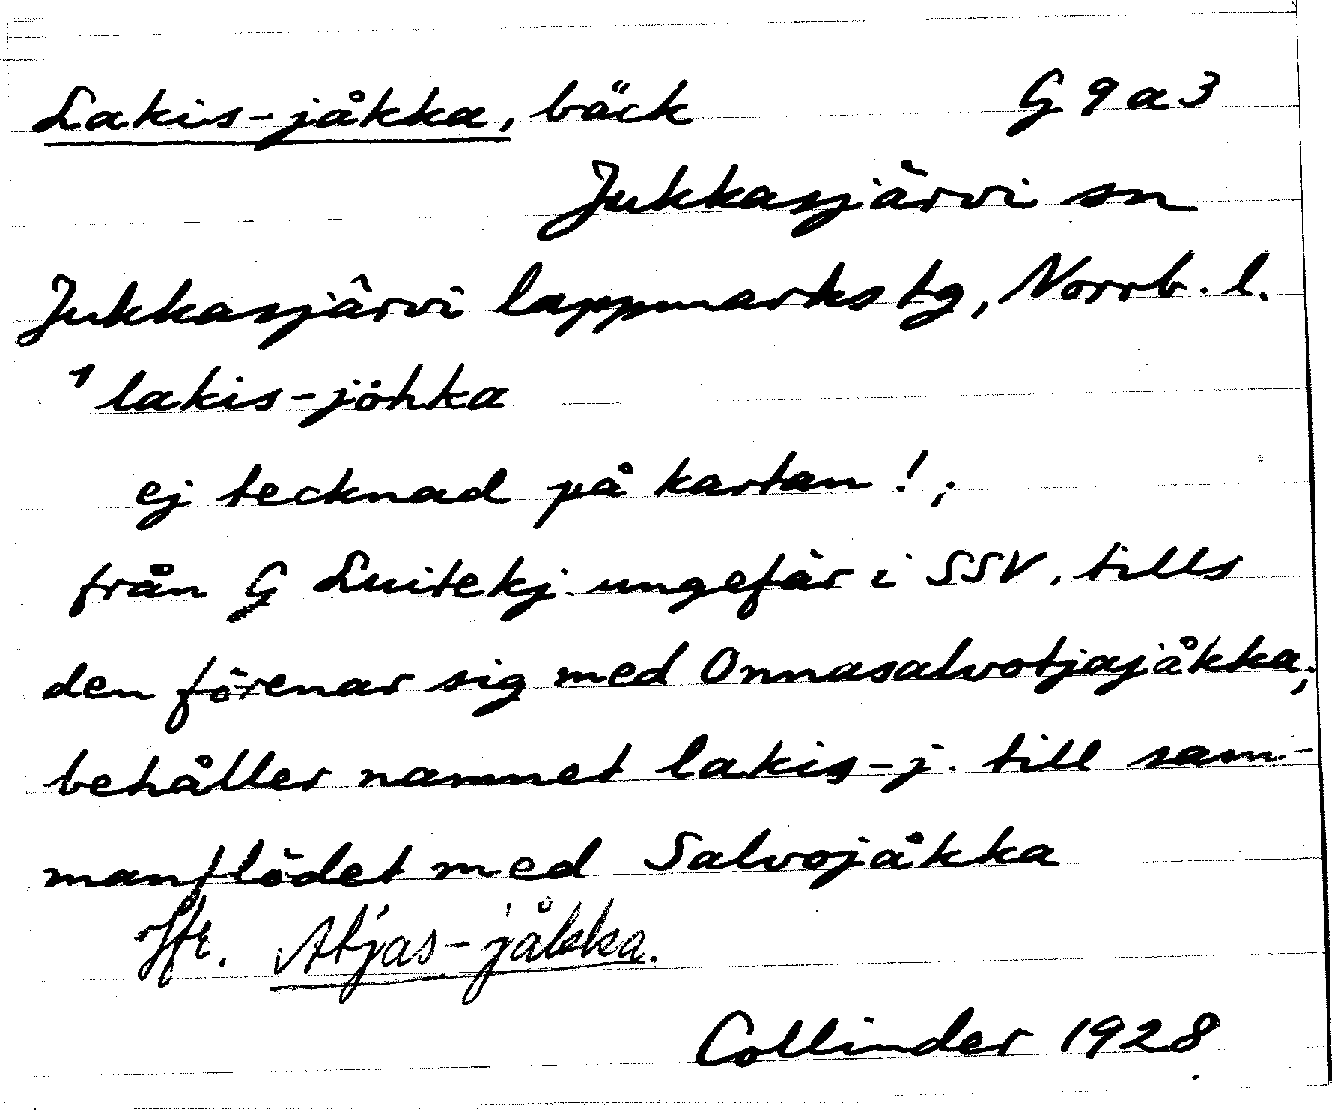 Lakis-jåkka, bäck G 9 a 3
Jukkasjärvi sn
Jukkasjärvi lappmarks tg, Norrb. l.
lakis-jöhka
ej tecknad på kartan!;
från G Luitekj ungefär i SSV. tills
den förenar sig med Onnasalvotjajåkka;
behåller namnet lakis-j. till sam-
manflödet med Salvojåkka
Jfr. Atjas-jåkka.
Collinder 1928